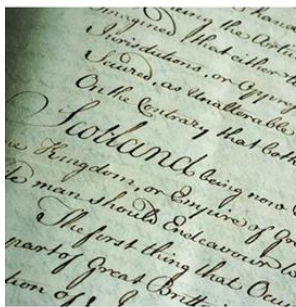 imagined that either
Jurisdictions, or
Secured, as Unalterable
On the Contrary that both
Scotland being now
Kingdom, or Empire of
man should Endeavour
The first thing that
part of Great